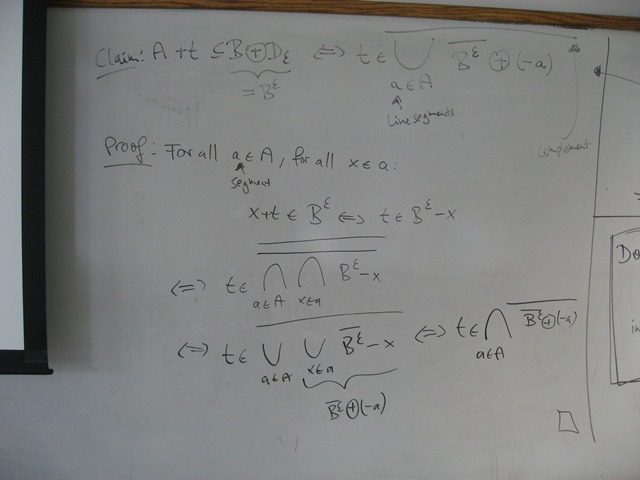 Claim: A + t ⊆ B ⊕ D_ε ⟺ t ∈ \overline{⋃_{a∈A} \overline{B^ε} ⊕ (-a)}
= B^ε
line segments
complement
Proof: For all a ∈ A, for all x ∈ a:
segment
x+t ∈ B^ε ⟺ t ∈ B^ε - x
⟺ t ∈ \overline{\overline{⋂_{a∈A} ⋂_{x∈a} B^ε - x}}
⟺ t ∈ \overline{⋃_{a∈A} ⋃_{x∈a} \overline{B^ε} - x} ⟺ t ∈ ⋂_{a∈A} \overline{\overline{B^ε} ⊕ (-a)}
\overline{B^ε} ⊕ (-a)
Do
in